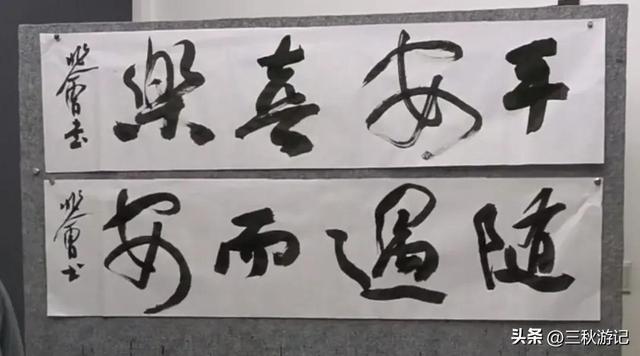 平安喜樂
随遇而安
头条 @三秋游记